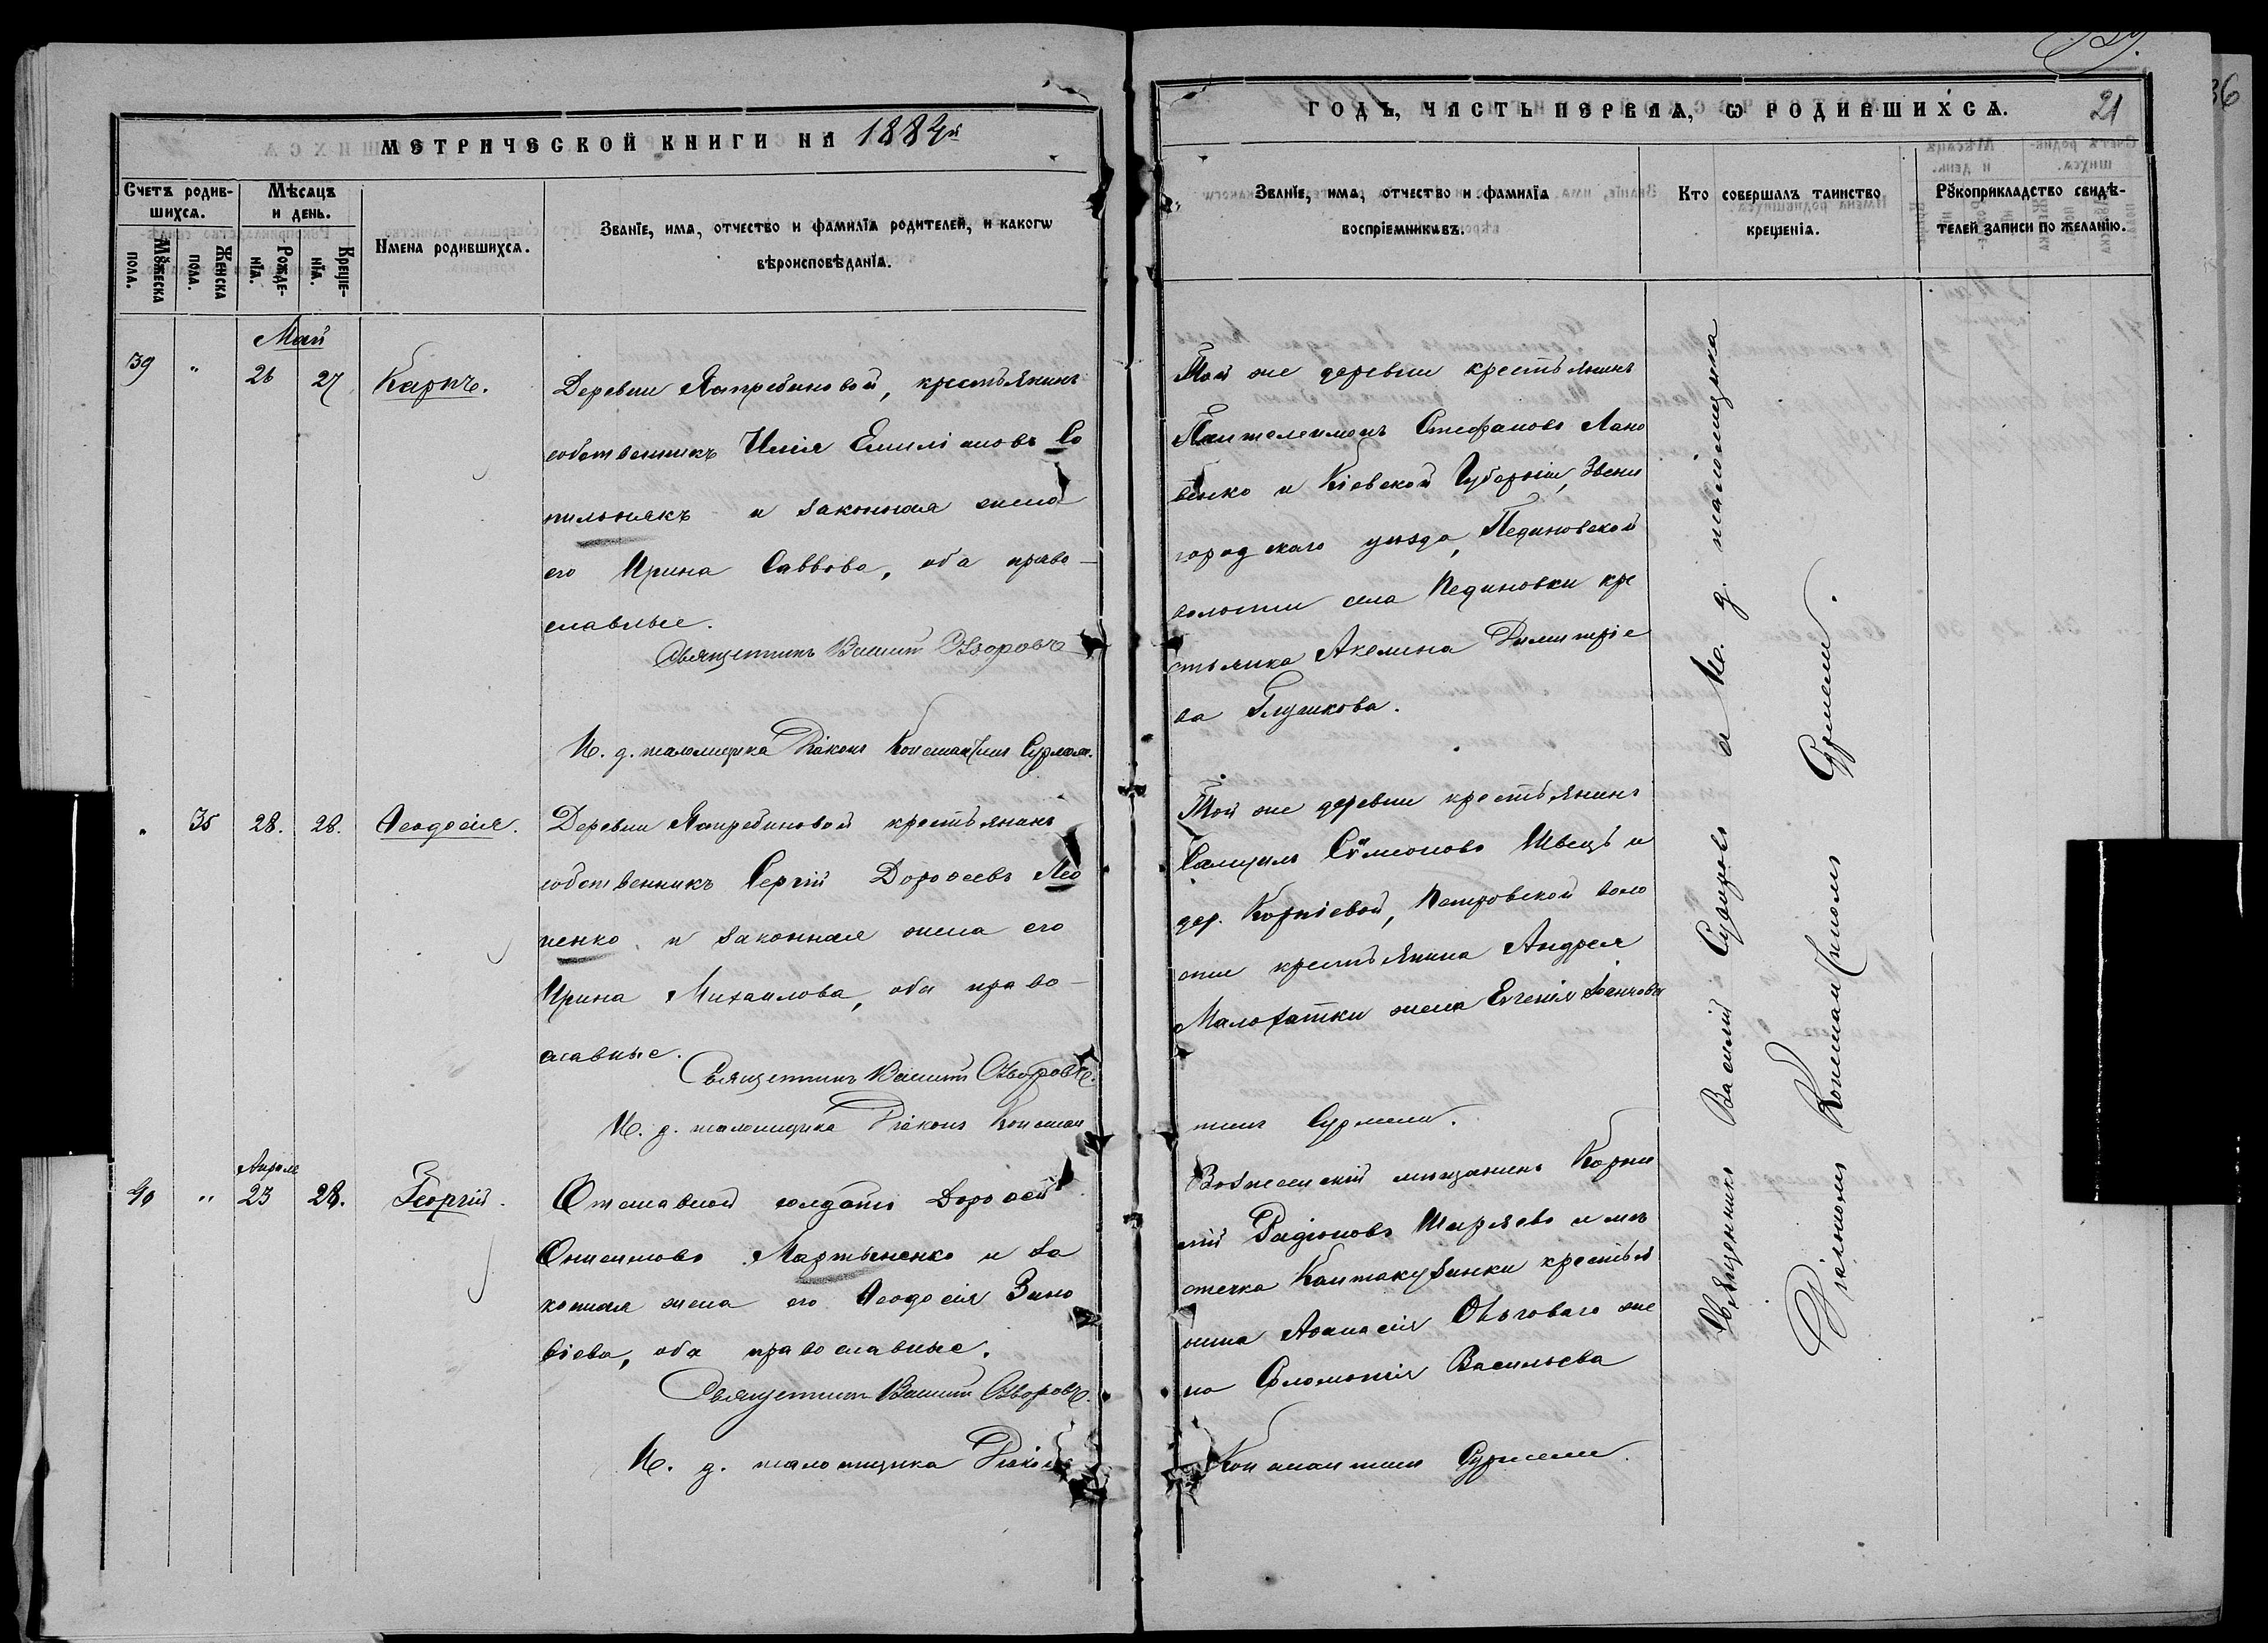 МЕТРИЧЕСКОЙ КНИГИ НА 1884й
Счетъ родив-
шихсѧ.
Мѣсѧцъ
и день.
Мꙋжеска пола.
Женска пола.
Рожде-
нїѧ.
Креще-
нїѧ.
Имена родившихсѧ.
Званїе, имѧ, отчество и фамилїѧ родителей, и какогѡ
вѣроисповѣданїѧ.
Май
39 " 26 27 Карпъ.
Деревни Ястребиновой, крестьянинъ
собственникъ Илія Емиліановъ Со
пильнякъ и законная жена
его Ирина Саввова, оба право-
славные.
Священникъ Василій
И. д. псаломщика Діаконъ Константинъ
" 35 28. 28. Ѳеодосія.
Деревни Ястребиновой крестьянинъ
собственникъ Сергій Дороѳеевъ Лео
ненко и законная жена его
Ирина Михаилова, оба право-
славные.
Священникъ Василій
И. д. псаломщика Діаконъ Констан
Апрѣля
40 " 23 28. Георгій.
Отставной солдатъ Дороѳей
Онисимовъ Мартыненко и за
конная жена его Ѳеодосія Зино
віева, оба православные.
Священникъ Василій
И. д. псаломщика Діаконъ
ГОДЪ, ЧАСТЬ ПЕРВАѦ, Ѡ РОДИВШИХСѦ.
21
36
Званїе, имѧ, отчество и фамилїѧ
воспрїемникивъ.
Кто совершалъ таинство
крещенїѧ.
Рꙋкоприкладство свидѣ-
телей записи по желанїю.
Той же деревни крестьянинъ
Пантелеимонъ Стефановъ Лано
венко и Кіевской Губерніи, Звени
городскаго уѣзда, Пединовской
волости села Пединовки кре
стьянка Акелина Димитріе
ва Глушкова.
Той же деревни крестьянинъ
Самуилъ Сѵмеоновъ Швецъ и
дер. Корніевой, Петровской воло
сти крестьянина Андрея
Малохатки жена Евгенія
тинъ
Вознесенскій мѣщанинъ Корни
лій Радіоновъ Ширяевъ и мѣ
стечка Кантакузинки крестья
нина Аѳанасія же
на Соломонія Васильева
Константинъ
Священникъ Василій а И. д. псаломщика
Діаконъ Константинъ